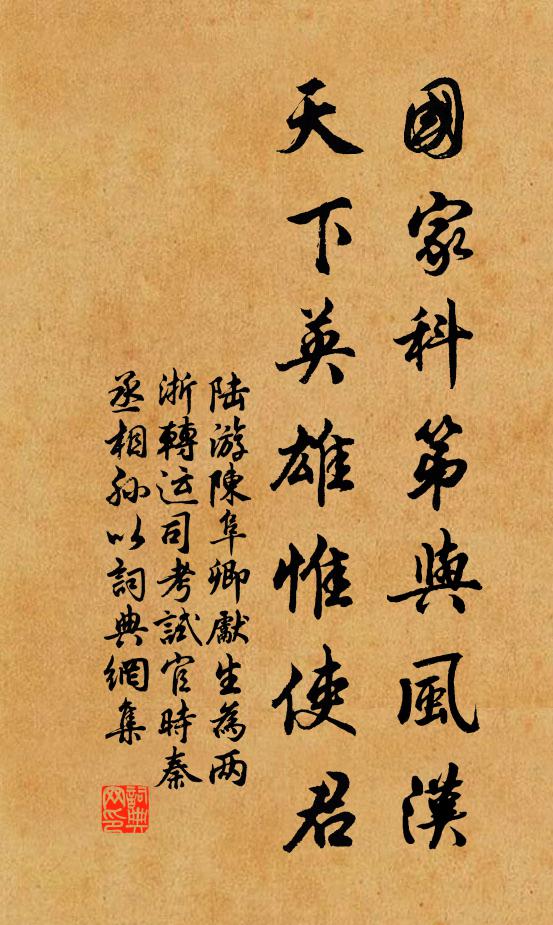 國家科第與風漢
天下英雄惟使君
陸游陳阜卿獻生為两
浙轉运司考試官時秦
丞相孙以詞典網集
詞典網印